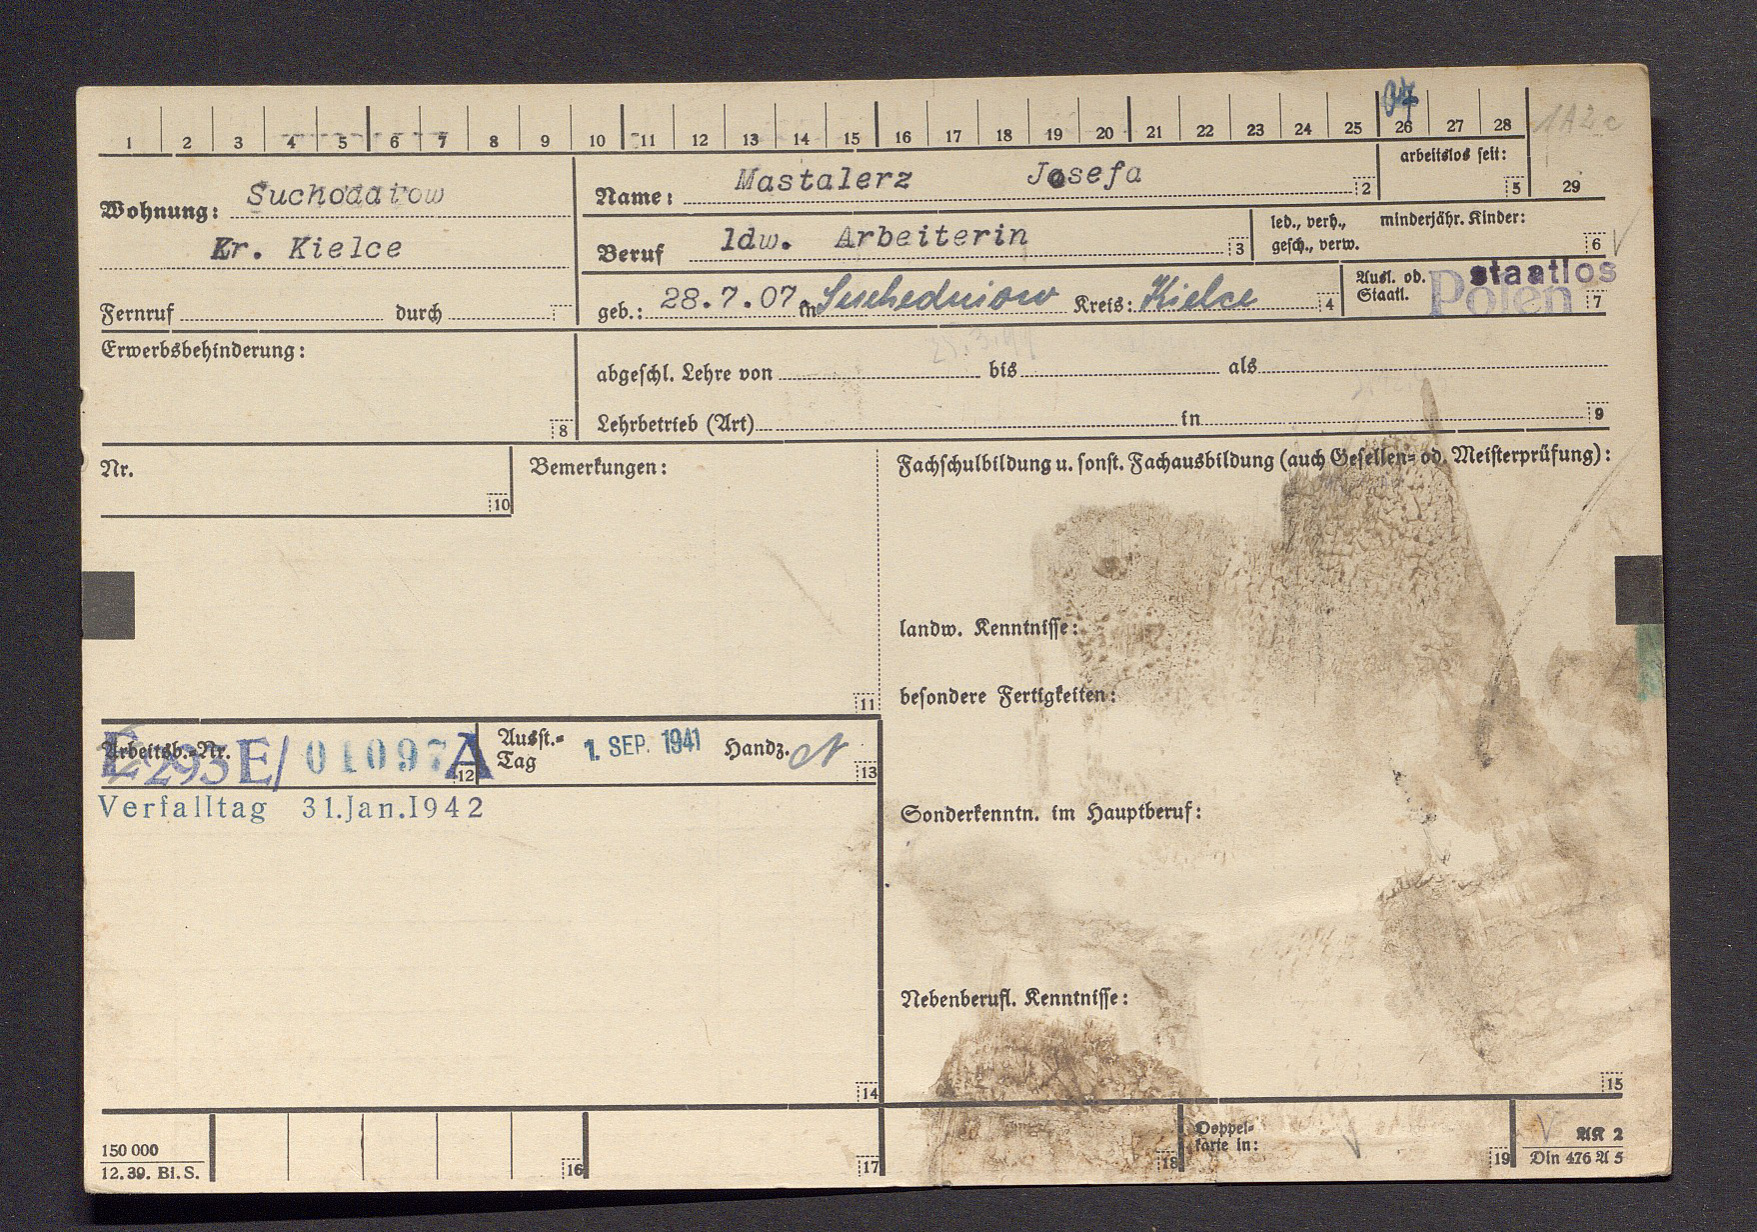 1 2 3 4 5 6 7 8 9 10 11 12 13 14 15 16 17 18 19 20 21 22 23 24 25 26 27 28 1A2c
07
arbeitslos seit:
5 29
Wohnung: Suchodarow
Kr. Kielce
Fernruf durch
Name: Mastalerz Josefa 2
Beruf ldw. Arbeiterin 3
led., verh., minderjähr. Kinder:
gesch., verw. 6
geb.: 28.7.07 in Suchedniow Kreis: Kielce 4
Ausl. od. staatlos
Staatl. Polen 7
Erwerbsbehinderung:
8
abgeschl. Lehre von bis als
Lehrbetrieb (Art) in 9
Nr.
10
Bemerkungen:
11
Fachschulbildung u. sonst. Fachausbildung (auch Gesellen- od. Meisterprüfung):
landw. Kenntnisse:
besondere Fertigkeiten:
Sonderkenntn. im Hauptberuf:
Nebenberufl. Kenntnisse:
15
Arbeitsb.-Nr. E 293 E/ 01097 A 12
Ausst.-
Tag 1. SEP. 1941 Handz. 13
Verfalltag 31.Jan.1942
14
150 000
12. 39. Bl. S.
16 17 18
Doppel-
karte in:
19
AK 2
Din 476 A 5